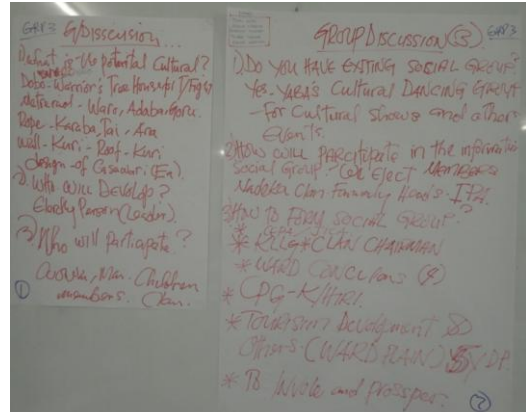 GRP 3 G/DISSCUSSION...
1) What is the potential Cultural?
Dobo-Warrior's Tree House for / Fight
Material - Waro, Adaba-Goru.
Rope - Karaba, Tai - Ara
Wall - Kuri - Roof - Kuri
design - of Casauri (Ea)
2) Who will Develop?
Elderly Person (Leader).
3) Who will participate?
Man. Children
members. Clan.
1
GROUP DISCUSSION (3) GRP 3
1) DO YOU HAVE EXTING SOCIAL GROUP?
Yes - YARA'S Cultural DANCING GROUP
- For Cultural Shows and others
Events.
2) HOW WILL PARTICIPATE in the
Social Group - Eject Members
Clan Family Heads. IPA
3) HOW TO FORM SOCIAL GROUP?
* CLAN CHAIRMAN
* WARD (4)
* CPG -
* TOURISIM DEVELOPMENT
Others (WARD PLAIN) 5 Y/DP.
* TO and prosper.
2